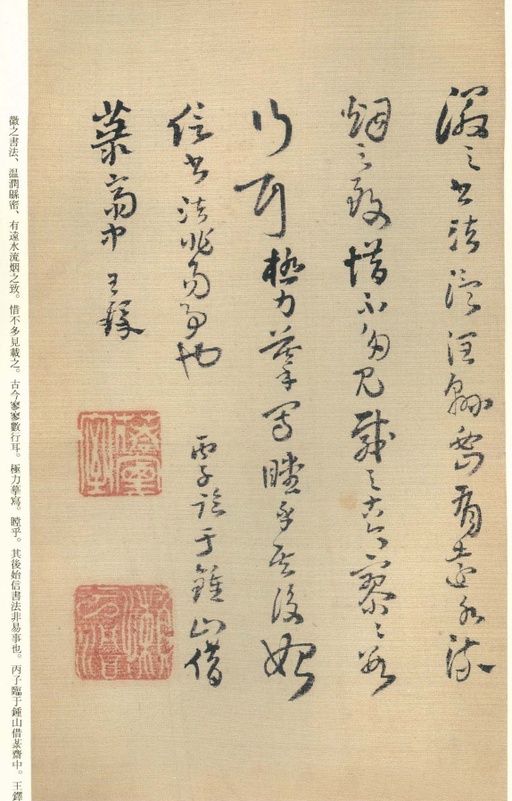 徽之書法溫潤緜密有遠水流
烟之致惜不多見載之古今寥寥數
行耳極力摹寫瞠乎其後始
信書法非易事也
丙子臨于鍾山借
菉齋中王鐸
徽之書法、溫潤緜密、有遠水流烟之致。惜不多見載之。古今寥寥數行耳。極力摹寫。瞠乎。其後始信書法非易事也。丙子臨于鍾山借菉齋中。王鐸